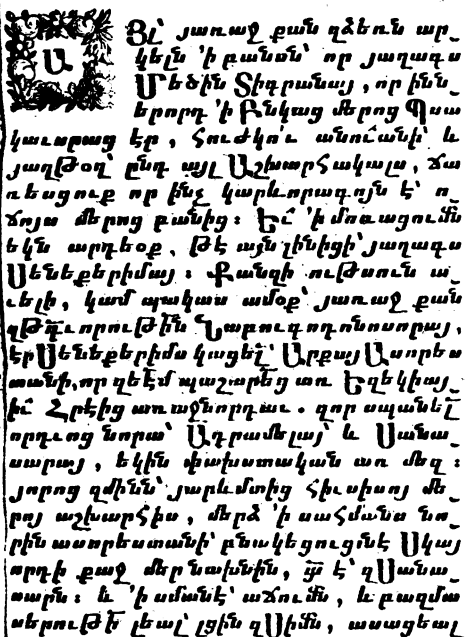 ԱՅլ՝ յառաջ քան զձեռն ար_
կելն ՚ի բանսն՝ որ յաղագս
Մեծին Տիգրանայ, որ ինն_
երորդ ՚ի Բնկաց մերոց Պսա
կաւորաց էր, Հուժկո՛ւ անուանի՝ և
յաղթօղ՝ ընդ այլ Աշխարհակալս, Ճա
ռեսցուք որ ինչ կարևորագոյն է՝ ո_
ճոյս մերոց բանից։ Եւ ՚ի մոռացումն
եկն արդեօք, թէ այն լինիցի՝ յաղագս
Սենեքերիմայ։ Քանզի ութսուն ա_
ւելի, կամ պակաս ամօք՝ յառաջ քան
զԹգւորութին Նաբուգոդոնոսորայ,
էր Սենեքերիմս կացել՝ Արքայ Ասորես
տանի, որ զեէմ պաշարեց առ Եզեկիայ_
իւ Հրէից առաջնորդաւ. զոր սպանել՝
որդւոց նորա՝ Ադրամելայ՝ և Սանա_
սարայ, եկին փախստական առ մեզ։
յորոց զմինն՝ յարևմտից հիւսիսոյ մե_
րոյ աշխարհիս, մերձ ՚ի սահմանս նո_
րին ասորեստանի՝ բնակեցուցնէ Սկայ
որդի քաջ մեր նախնին, այս է՝ զՍանա_
սարն։ և ՚ի սմանէ՝ աճումն, և բազմա
սերութի լեալ՝ լցին զՍիմն, ասացեալ